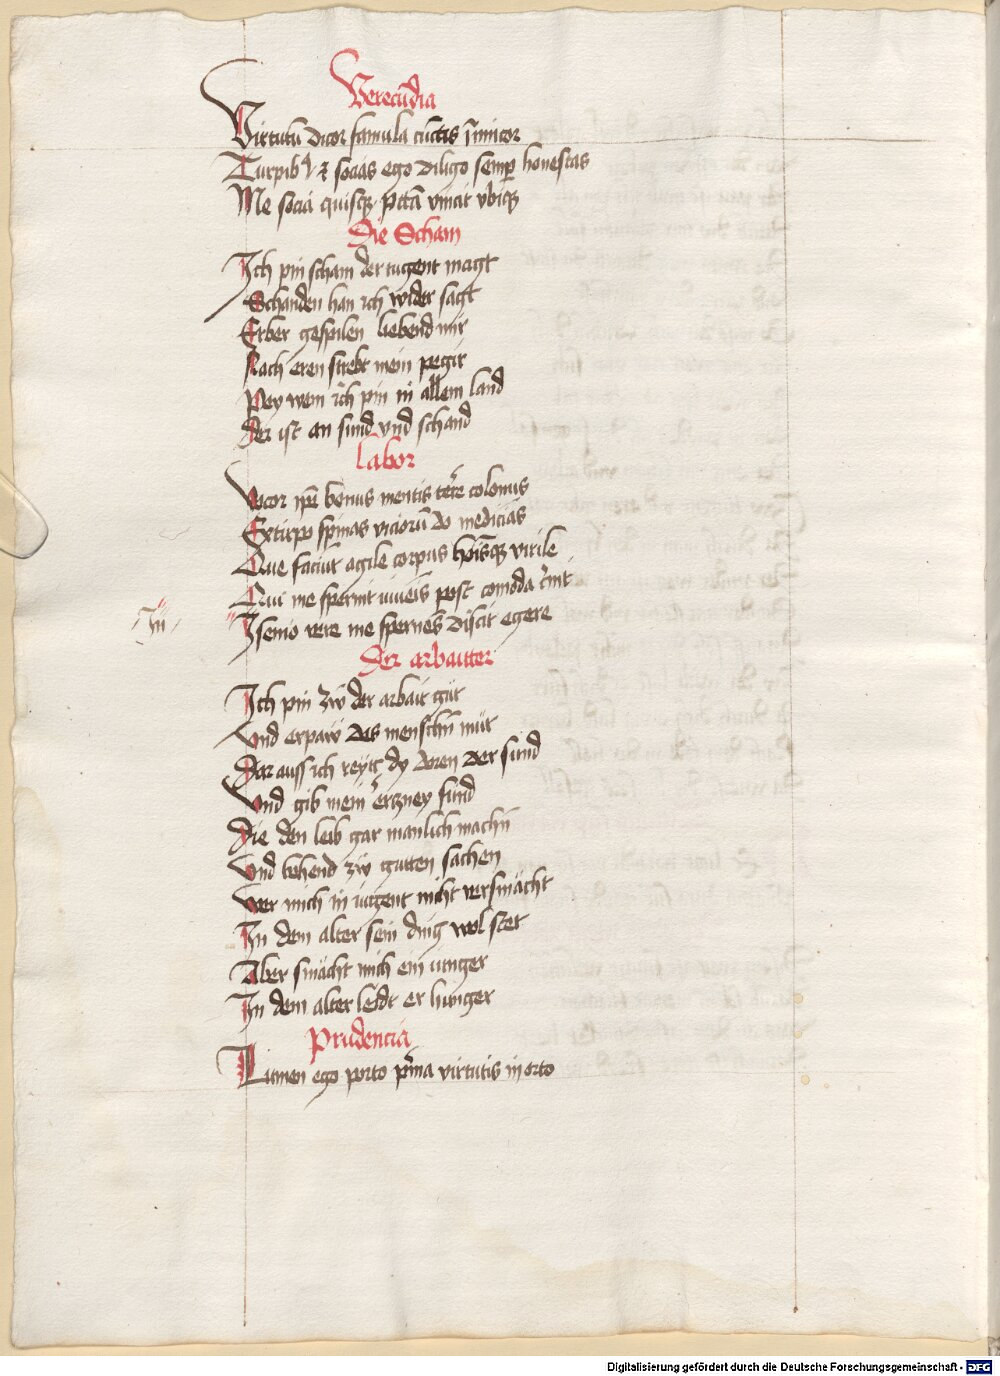 Verecūdia
Virtutū dicor famula cūctis īimicor
Turpibꝰ ⁊ socias ego diligo semꝑ honestas
Me socia quisqꝫ pctā vincit vbiqꝫ
Die Scham
Ich pin scham der tugent magt
Schanden han ich wider sagt
Erber gespilen liebend mir
Nach eren strebt mein pegir
Pey wem ich pin in allem land
Der ist an sund vnd schand
Labor
Vocor bonus mentis colonus
Extirpo spinas viciorū do medicīas
Que faciūt agile corpus virile
Qui me spernit post comoda
In
I senio vere me spernēs discit egere
Der arbaitter
Ich pin zw der arbait gut
Vnd erpaw des menschn mut
Dar auss ich reytt dy doren der sund
Vnd gib mein erczney fund
Die den leib gar manlich machn
Vnd behend zw gutten sachen
Wer mich in iugent nicht versmächt
In dem alter sein ding wol stet
Aber smächt mich ein iunger
In dem alter leidt er hunger
Prudencia
Lumen ego porto pͥma virtutis in orto
Digitalisierung gefördert durch die Deutsche Forschungsgemeinschaft - DFG